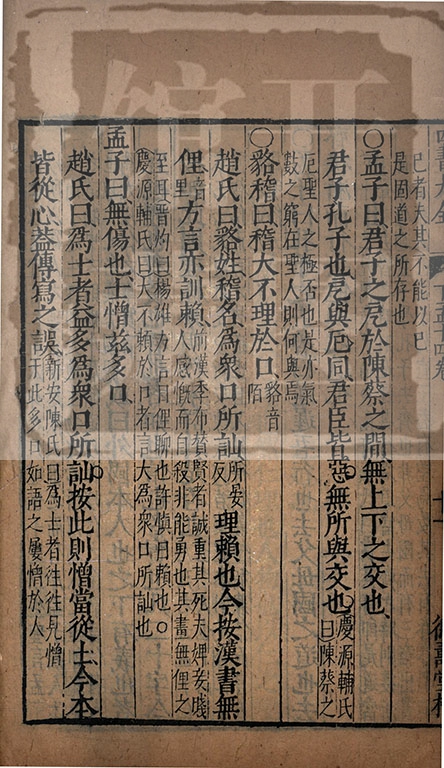 已者夫其不能以已
是固道之所存也
○孟子曰君子之戹於陳蔡之間無上下之交也
君子孔子也戹與厄同君臣皆惡無所與交也慶源輔氏曰陳蔡之
厄聖人之極否也是亦氣數之窮在聖人則何與焉
○貉稽曰稽大不理於口貉音陌
趙氏曰貉姓稽名為衆口所訕所晏反理賴也今按漢書無
俚音里方言亦訓賴前漢季布贊賢者誠重其死夫婢妾賤人感慨而自殺非能勇也其畫無俚之
至耳晉灼曰楊雄方言曰俚聊也許慎曰賴也。慶源輔氏曰大不賴於口者言大為衆口所訕也
孟子曰無傷也士憎茲多口
趙氏曰為士者益多為衆口所訕按此則憎當從土今本
皆從心蓋傳寫之誤新安陳氏曰為士者往往見憎于此多口如語之屢憎於人